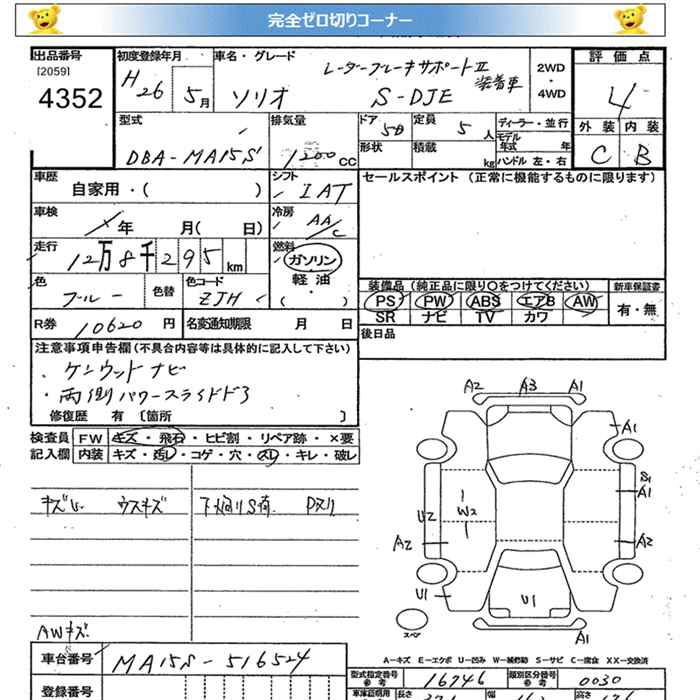 完全ゼロ切りコーナー
出品番号 初度登録年月 車名・グレード 評価点
[2059] レーダーブレーキサポートⅡ 装着車 2WD
4352 H26 5月 ソリオ S-DJE ・4WD 4
型式 排気量 ドア 定員 ディーラー・並行 外装 内装
5D 5人 モデル年式 年
DBA-MA15S 1200cc 形状 積載 kg ハンドル 左・右 C B
車歴 シフト セールスポイント (正常に機能するものに限ります)
自家用・( ) IAT
車検 冷房
年 月( 日) AA/C
走行 燃料
12万8千295km ガソリン
軽油
色 色替 色コード ・( ) 装備品 (純正品に限り○をつけてください) 新車保証書
ブルー ZJH PS PW ABS エアB AW 有・無
SR ナビ TV カワ
R券 10620円 名変通知期限 月 日 後日品
注意事項申告欄 (不具合内容等は具体的に記入して下さい)
・ケンウッドナビ
・両側パワースライドドア
修復歴 有 〔箇所 〕
A2 A3 A1
検査員 FW キズ・飛石・ヒビ割・リペア跡・×要 A1
記入欄 内装 キズ・汚レ・コゲ・穴・スレ・キレ・破レ
S1
A1
キズU ウスキズ 下廻りS有 Dヌリ W2
U2
A2 A2
U1 U1
スペア
AWキズ A1
A-キズ E-エクボ U-凹み W-補修跡 S-サビ C-腐食 XX-交換済
車台番号 MA15S-516524 型式指定番号 参考 16746 類別区分番号 参考 0030
登録番号 車庫証明用 参考 長さ 幅 高さ